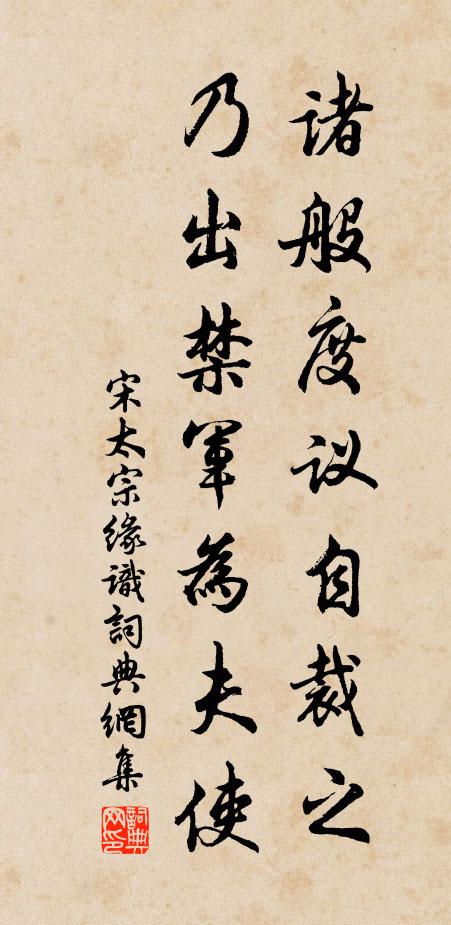 诸般度议自裁之
乃出禁军為夫使
宋太宗缘識詞典網集
詞典网印